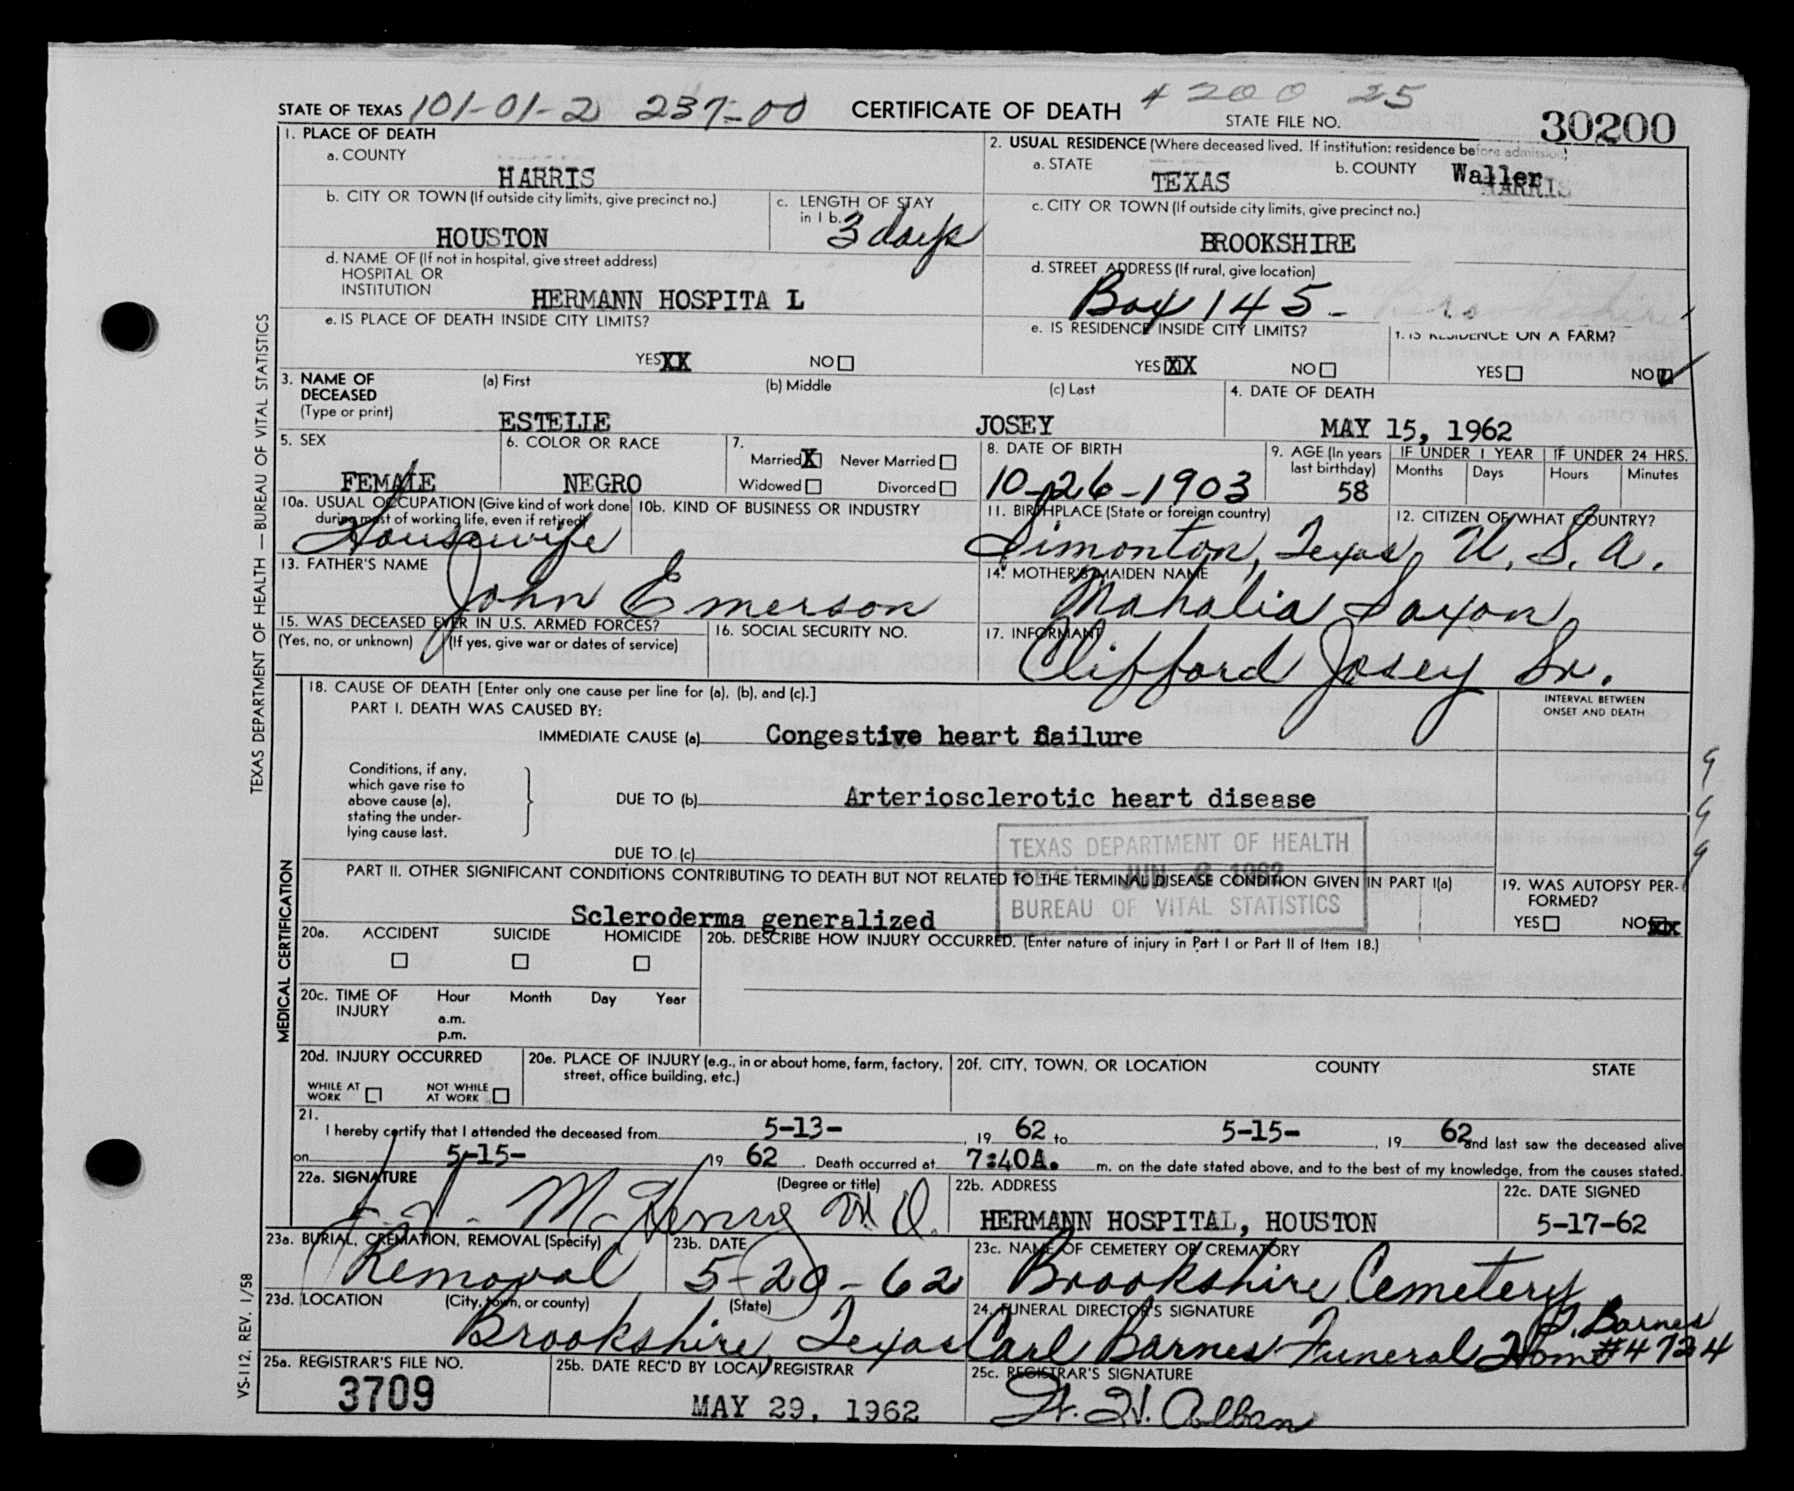 STATE OF TEXAS 101-01-2 237-00 CERTIFICATE OF DEATH + 200 25
STATE FILE NO. 30200
1. PLACE OF DEATH
a. COUNTY
HARRIS
2. USUAL RESIDENCE (Where deceased lived. If institution: residence before admission)
a. STATE b. COUNTY
TEXAS Waller HARRIS
b. CITY OR TOWN (If outside city limits, give precinct no.)
HOUSTON
c. LENGTH OF STAY
in 1 b.
3 days
c. CITY OR TOWN (If outside city limits, give precinct no.)
BROOKSHIRE
d. NAME OF (If not in hospital, give street address)
HOSPITAL OR
INSTITUTION
HERMANN HOSPITA L
d. STREET ADDRESS (If rural, give location)
Box 145 - Brookshire
e. IS PLACE OF DEATH INSIDE CITY LIMITS?
YES XX NO
e. IS RESIDENCE INSIDE CITY LIMITS?
YES XX NO
f. IS RESIDENCE ON A FARM?
YES NO
3. NAME OF
DECEASED
(Type or print)
(a) First (b) Middle (c) Last
ESTELIE JOSEY
4. DATE OF DEATH
MAY 15, 1962
5. SEX
FEMALE
6. COLOR OR RACE
NEGRO
7.
Married X Never Married
Widowed Divorced
8. DATE OF BIRTH
10-26-1903
9. AGE (In years
last birthday)
58
IF UNDER 1 YEAR IF UNDER 24 HRS.
Months Days Hours Minutes
10a. USUAL OCCUPATION (Give kind of work done
during most of working life, even if retired)
Housewife
10b. KIND OF BUSINESS OR INDUSTRY
11. BIRTHPLACE (State or foreign country)
Simonton, Texas
12. CITIZEN OF WHAT COUNTRY?
U. S. A.
13. FATHER'S NAME
John Emerson
14. MOTHER'S MAIDEN NAME
Mahalia Saxon
15. WAS DECEASED EVER IN U.S. ARMED FORCES?
(Yes, no, or unknown) (If yes, give war or dates of service)
16. SOCIAL SECURITY NO.
17. INFORMANT
Clifford Josey Sr.
18. CAUSE OF DEATH [Enter only one cause per line for (a), (b), and (c).]
PART I. DEATH WAS CAUSED BY:
INTERVAL BETWEEN
ONSET AND DEATH
IMMEDIATE CAUSE (a) Congestive heart failure
Conditions, if any,
which gave rise to
above cause (a),
stating the under-
lying cause last.
DUE TO (b) Arteriosclerotic heart disease
DUE TO (c)
TEXAS DEPARTMENT OF HEALTH
REC'D JUN 6 1962
BUREAU OF VITAL STATISTICS
PART II. OTHER SIGNIFICANT CONDITIONS CONTRIBUTING TO DEATH BUT NOT RELATED TO THE TERMINAL DISEASE CONDITION GIVEN IN PART I(a)
Scleroderma generalized
19. WAS AUTOPSY PER-
FORMED?
YES NO XX
20a. ACCIDENT SUICIDE HOMICIDE
20b. DESCRIBE HOW INJURY OCCURRED. (Enter nature of injury in Part I or Part II of Item 18.)
20c. TIME OF
INJURY
Hour Month Day Year
a.m.
p.m.
20d. INJURY OCCURRED
WHILE AT
WORK
NOT WHILE
AT WORK
20e. PLACE OF INJURY (e.g., in or about home, farm, factory,
street, office building, etc.)
20f. CITY, TOWN, OR LOCATION COUNTY STATE
21.
I hereby certify that I attended the deceased from 5-13- , 19 62 to 5-15- , 19 62 and last saw the deceased alive
on 5-15- 19 62 . Death occurred at 7:40A. m. on the date stated above, and to the best of my knowledge, from the causes stated.
22a. SIGNATURE (Degree or title)
McHenry M D.
22b. ADDRESS
HERMANN HOSPITAL, HOUSTON
22c. DATE SIGNED
5-17-62
23a. BURIAL, CREMATION, REMOVAL (Specify)
Removal
23b. DATE
5-20-62
23c. NAME OF CEMETERY OR CREMATORY
Brookshire Cemetery
23d. LOCATION (City, town, or county) (State)
Brookshire, Texas
24. FUNERAL DIRECTOR'S SIGNATURE
Carl Barnes Funeral Home
J. Barnes
#4724
25a. REGISTRAR'S FILE NO.
3709
25b. DATE REC'D BY LOCAL REGISTRAR
MAY 29, 1962
25c. REGISTRAR'S SIGNATURE
W. H. Alban
TEXAS DEPARTMENT OF HEALTH — BUREAU OF VITAL STATISTICS
MEDICAL CERTIFICATION
VS-112, REV. 1/58
9
9
9